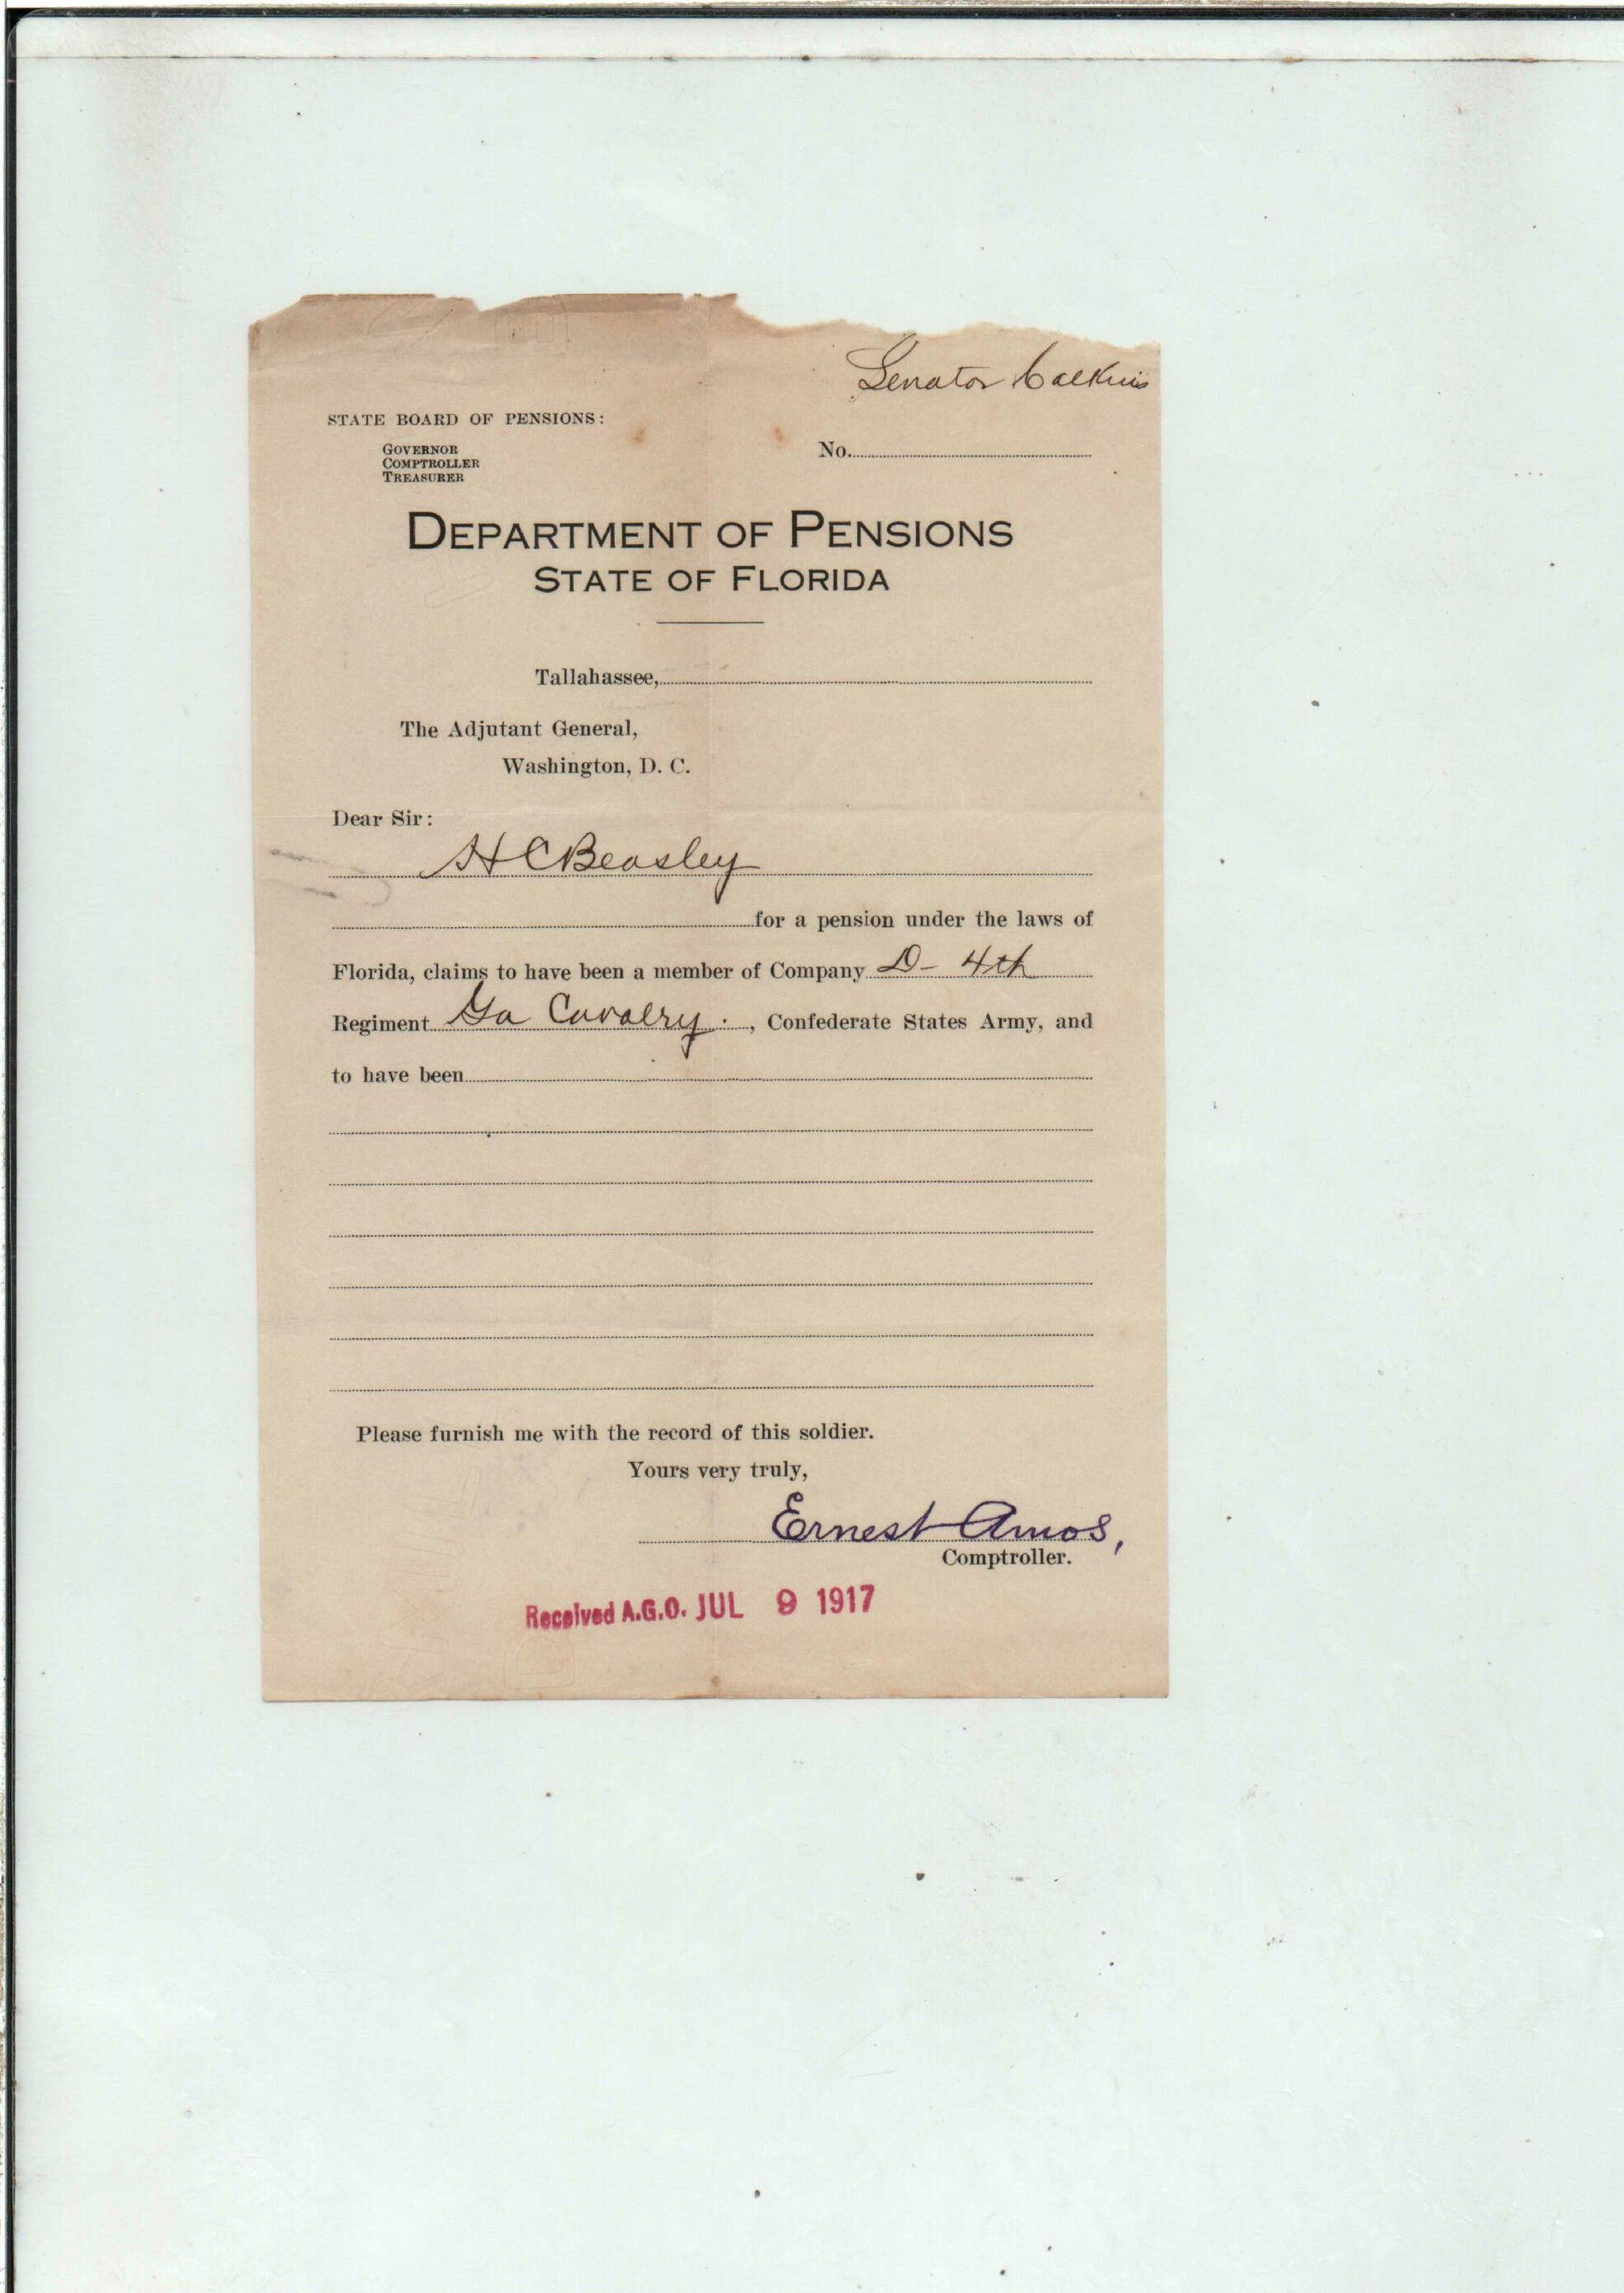 Senator Calkins
STATE BOARD OF PENSIONS:
GOVERNOR
COMPTROLLER
TREASURER
No.
DEPARTMENT OF PENSIONS
STATE OF FLORIDA
Tallahassee,
The Adjutant General,
Washington, D. C.
Dear Sir:
H C Beasley
for a pension under the laws of
Florida, claims to have been a member of Company D- 4th
Regiment Ga Cavalry., Confederate States Army, and
to have been
Please furnish me with the record of this soldier.
Yours very truly,
Ernest Amos,
Comptroller.
Received A.G.O. JUL 9 1917